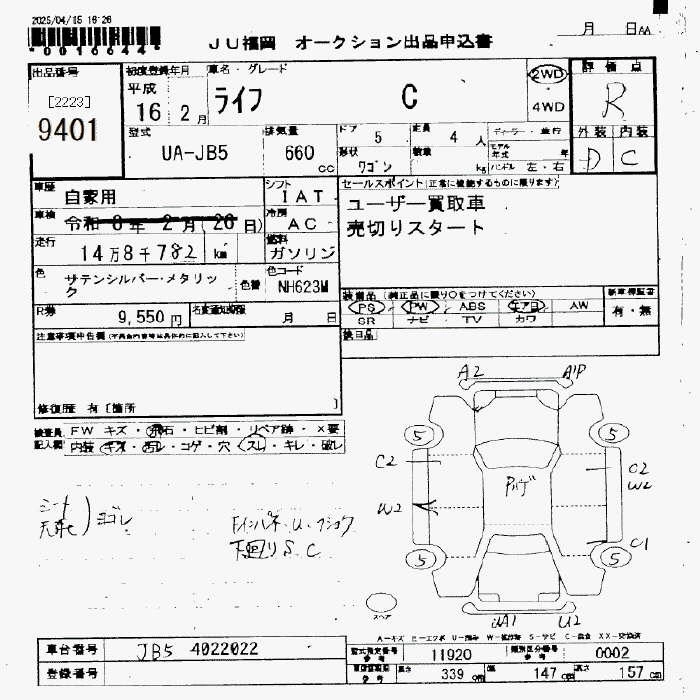 2025/04/15 16:26
*0016644*
JU福岡 オークション出品申込書
月 日AA
出品番号
[2223]
9401
初度登録年月
平成
16 2月
車名・グレード
ライフ C
2WD
4WD
評価点
R
外装 内装
D C
型式
UA-JB5
排気量
660 cc
ドア 5
定員 4 人
形状 ワゴン
積載 kg
ディーラー・並行
モデル年式 年
ハンドル 左・右
車歴 自家用
シフト IAT
車検 令和 8年 2月(26日)
冷房 AC
走行 14万8千782 km
燃料 ガソリン
色 サテンシルバー・メタリック
色替
色コード NH623M
R券 9,550円
名変通知期限 月 日
セールスポイント(正常に機能するものに限ります)
ユーザー買取車
売切りスタート
装備品(純正品に限り○をつけてください)
PS・PW・ABS・エアB・AW
SR ナビ・TV カワ
新車保証書
有・無
後日品
注意事項申告欄
修復歴 有〔箇所 〕
検査員記入欄
FW キズ・飛石・ヒビ割・リペア跡・×要
内装・キズ・汚レ・コゲ・穴・スレ・キレ・破レ
シート
天井 ヨゴレ
下回りS、C
A2
A1P
5
5
C2
C2
W2
W2
C1
5
5
U2
スペア
A-キズ E-エクボ U-凹み W-補修跡 S-サビ C-腐食 XX-交換済
車台番号 JB5 4022022
登録番号
型式指定番号 参考 11920
類別区分番号 参考 0002
長さ 339 cm
幅 147 cm
高さ 157 cm